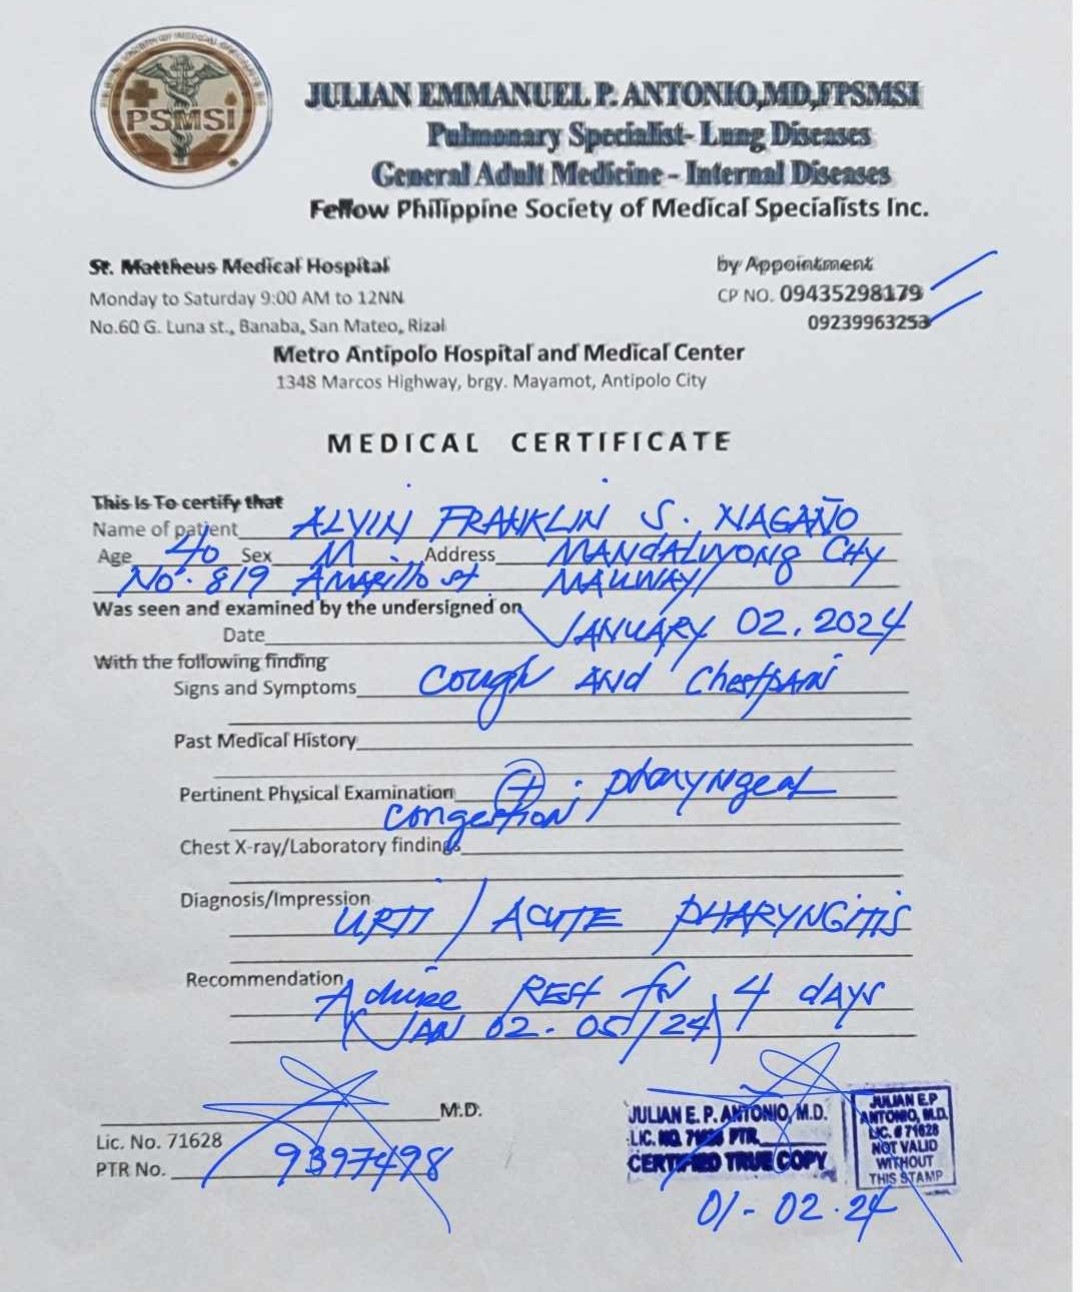 PSMSi
JULIAN EMMANUEL P. ANTONIO,MD,FPSMSI
Pulmonary Specialist- Lung Diseases
General Adult Medicine - Internal Diseases
Fellow Philippine Society of Medical Specialists Inc.
St. Mattheus Medical Hospital
Monday to Saturday 9:00 AM to 12NN
No.60 G. Luna st., Banaba, San Mateo, Rizal
by Appointment
CP NO. 09435298179
09239963253
Metro Antipolo Hospital and Medical Center
1348 Marcos Highway, brgy. Mayamot, Antipolo City
MEDICAL CERTIFICATE
This Is To certify that
Name of patient ALVIN FRANKLIN S. NAGAÑO
Age 40 Sex M. Address MANDALUYONG CITY
No. 819 AMARILLO st. MAUWAY
Was seen and examined by the undersigned on
Date JANUARY 02, 2024
With the following finding
Signs and Symptoms Cough AND Chestpain
Past Medical History
Pertinent Physical Examination (+) pharyngeal
congestion
Chest X-ray/Laboratory findings
Diagnosis/Impression
URTI / ACUTE PHARYNGITIS
Recommendation
Advise REST for 4 dAYS
(JAN 02 - 05/24)
M.D.
Lic. No. 71628
PTR No. 9397498
JULIAN E. P. ANTONIO, M.D.
LIC. NO. 71628 PTR
CERTIFIED TRUE COPY
01-02-24
JULIAN E.P
ANTONIO, M.D.
LIC. # 71628
NOT VALID
WITHOUT
THIS STAMP